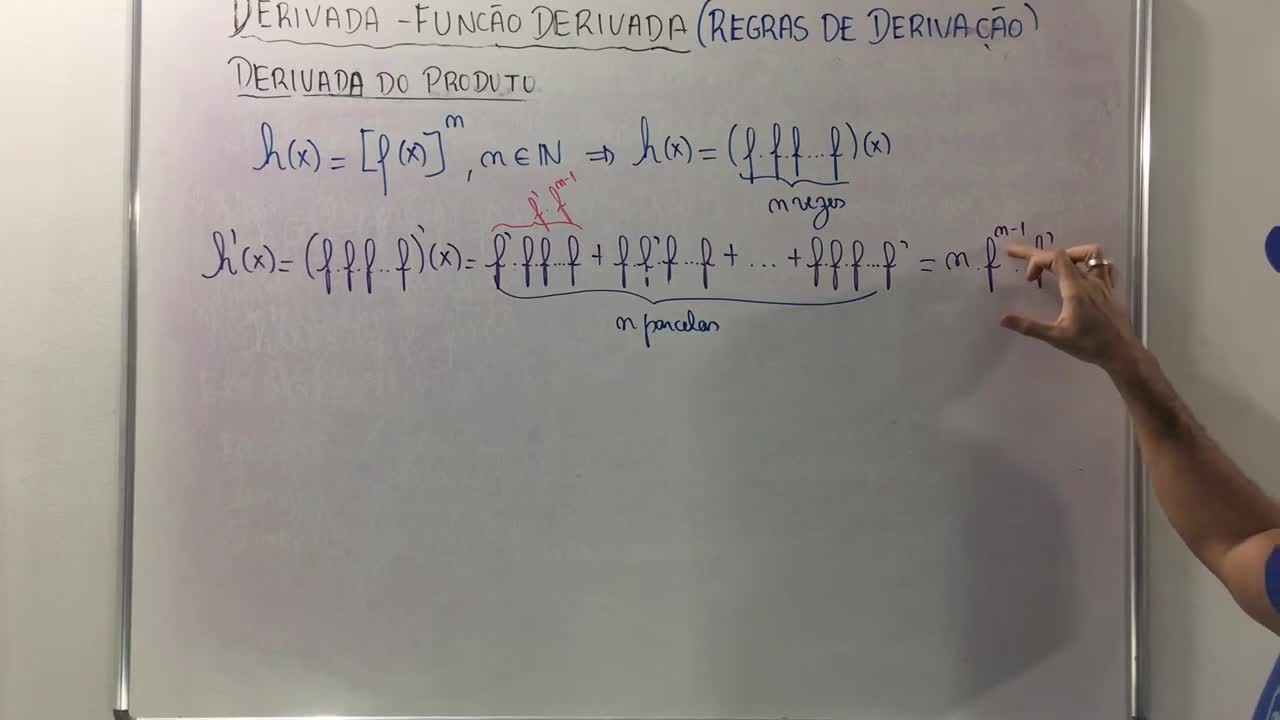 DERIVADA - FUNCÃO DERIVADA (REGRAS DE DERIVAÇÃO)
DERIVADA DO PRODUTO
h(x) = [f(x)]^n , n ∈ ℕ ⇒ h(x) = (f.f.f...f)(x)
n vezes
f'.f^n-1
h'(x) = (f.f.f...f)'(x) = f'.f.f...f + f.f'.f...f + ... + f.f.f...f' = n.f^n-1.f'
n parcelas